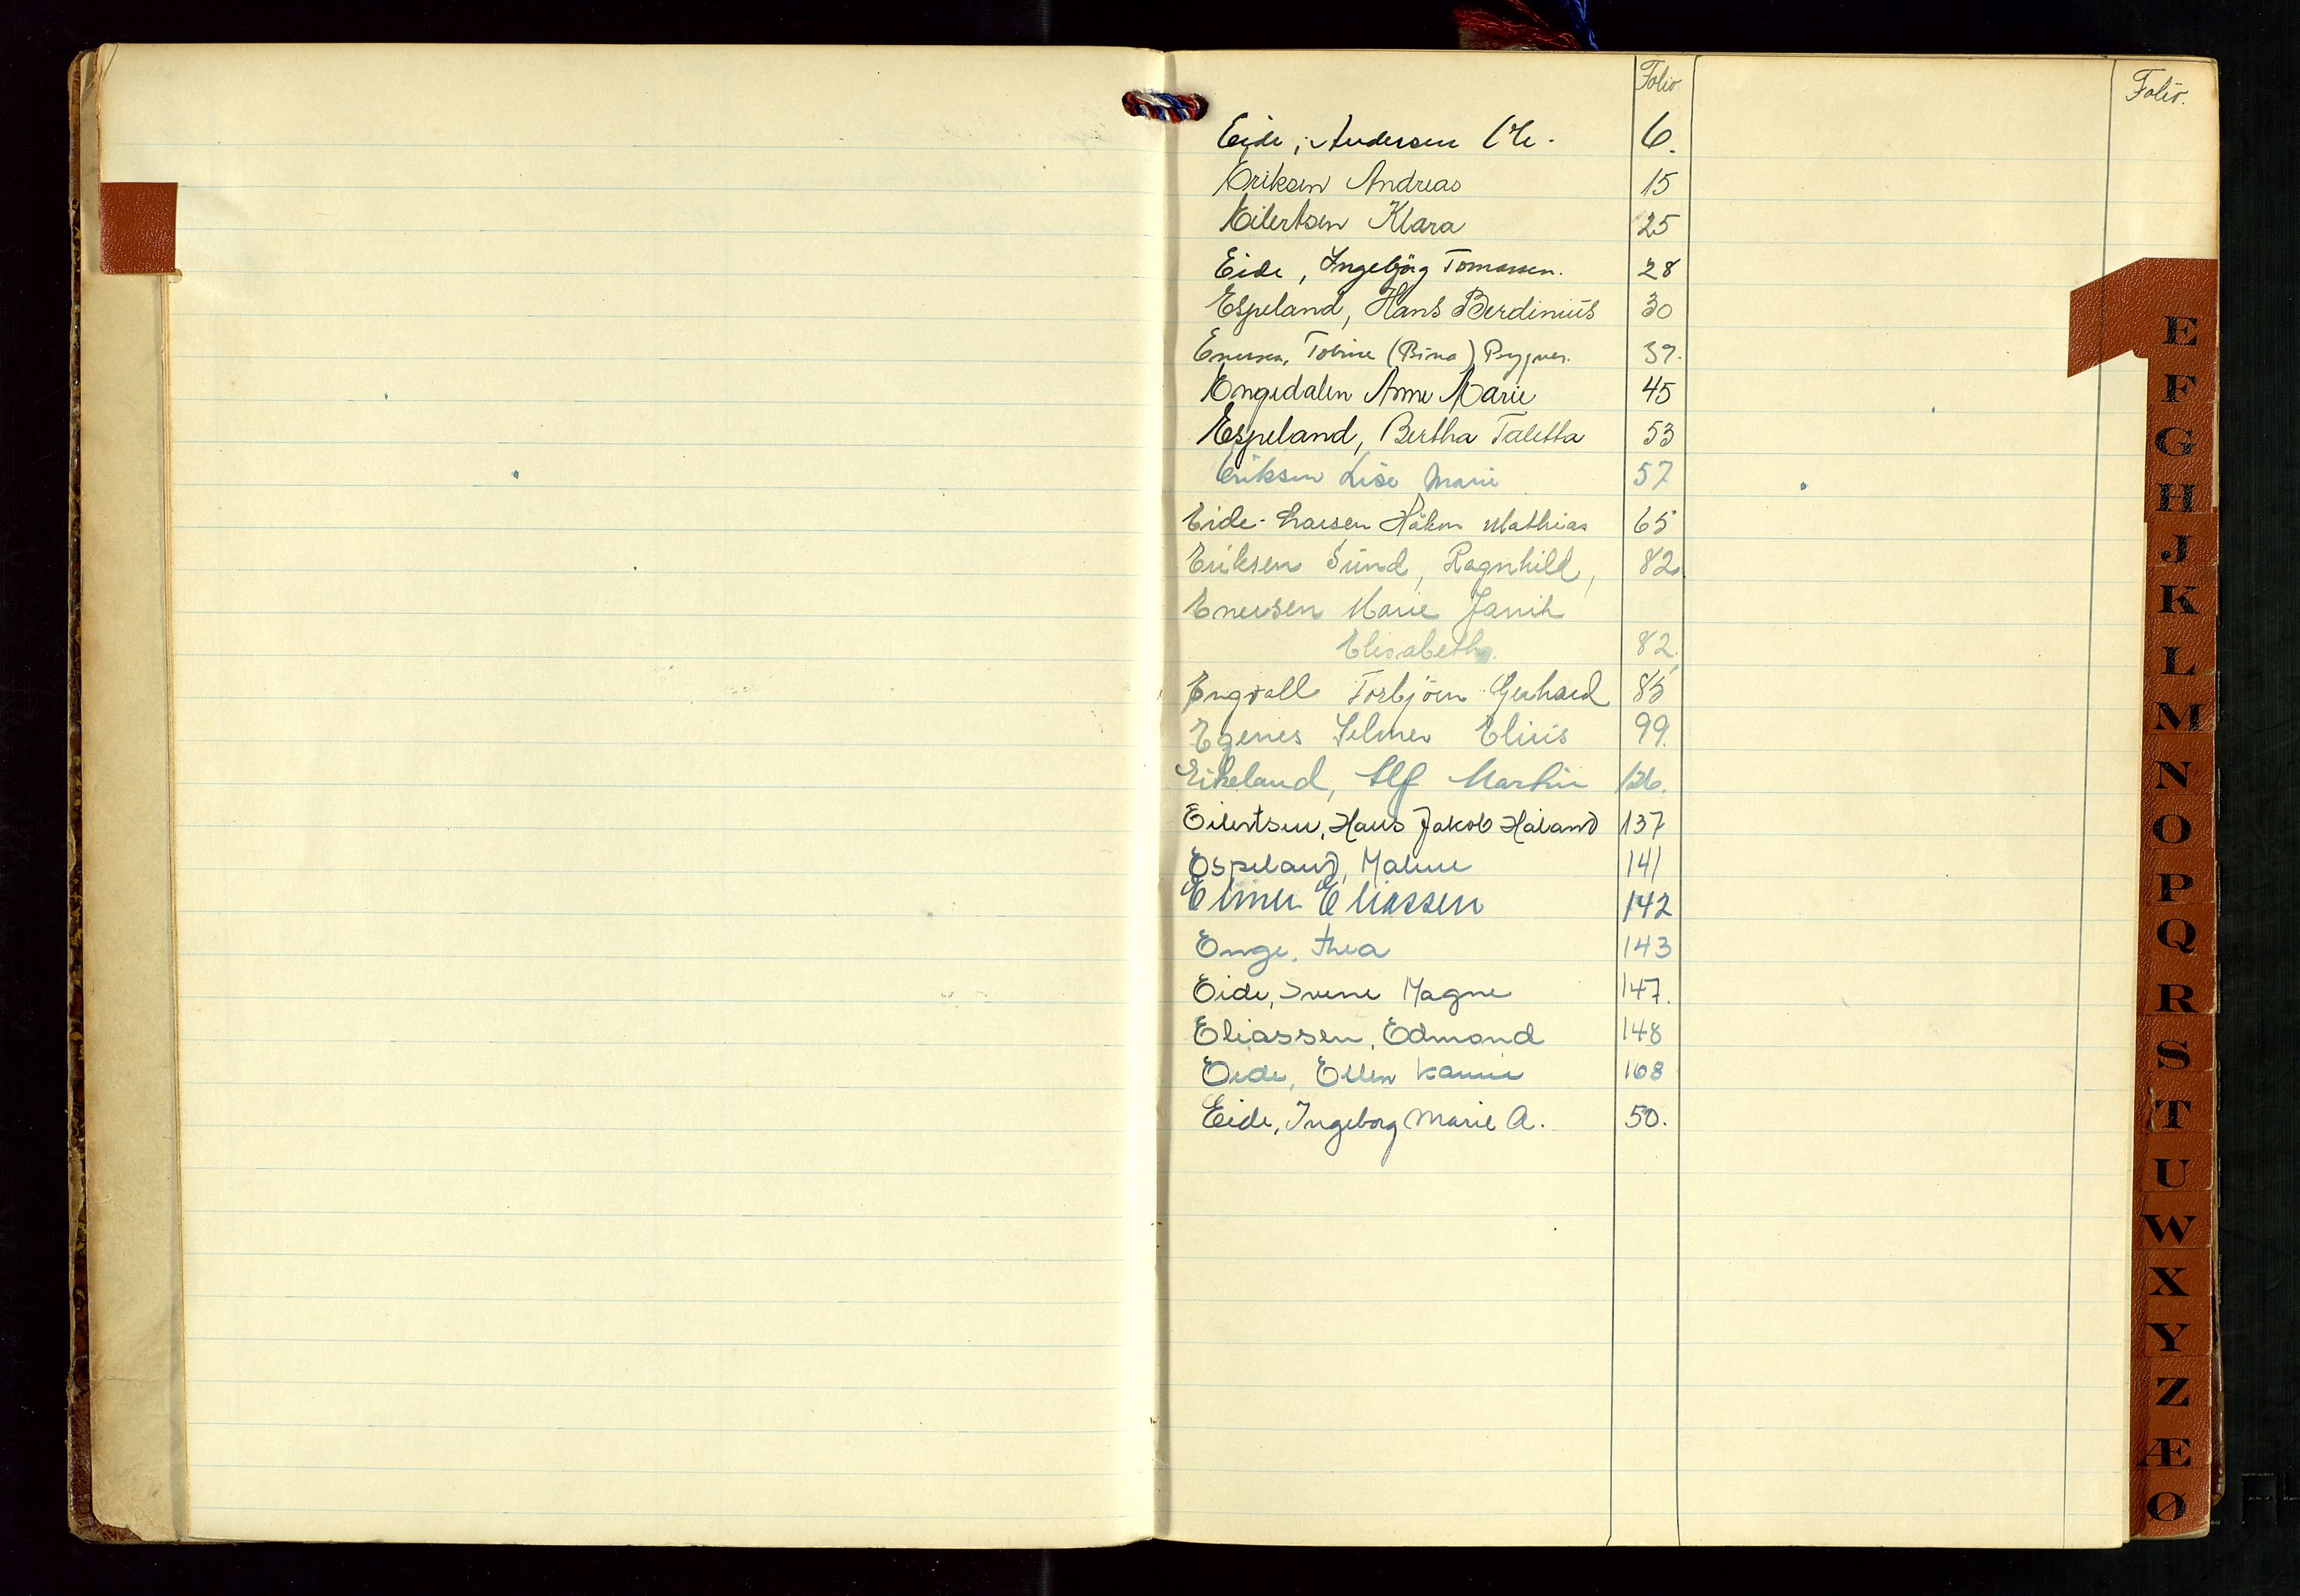 Folio
Folio.
Eide, Andersen Ole. 6.
Eriksen Andreas 15
Eilertsen Klara 25
Eide, Ingebjörg Tomassen. 28
Espeland, Hans Berdinius 30
Enersen, Tobine (Bina) 39.
Engedalen Anne Marie 45
Espeland, Bertha Taletta 53
Eriksen Lise Marie 57
Eide-Larsen Håkon Mathias 65
Eriksen Sund, Ragnhild, 82.
Enersen Marie Janik
Elisabeth. 82.
Engvall Torbjörn Gerhard 85
Egenes Selmer Elius 99.
Eikeland, Alf Martin 126.
Eilertsen, Hans Jakob Håland 137
Espeland, Malene 141
Elmer Eliassen 142
Enge, Thea 143
Eide, Svene Magne 147.
Eliassen, Edmond 148
Eide, Ellen Karin 168
Eide, Ingeborg Marie A. 50.
E
F
G
H
J
K
L
M
N
O
P
Q
R
S
T
U
W
X
Y
Z
Æ
Ø